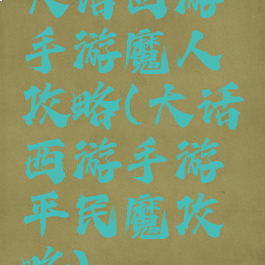 大话西游
手游魔人
攻略(大话
西游手游
平民魔攻
略)